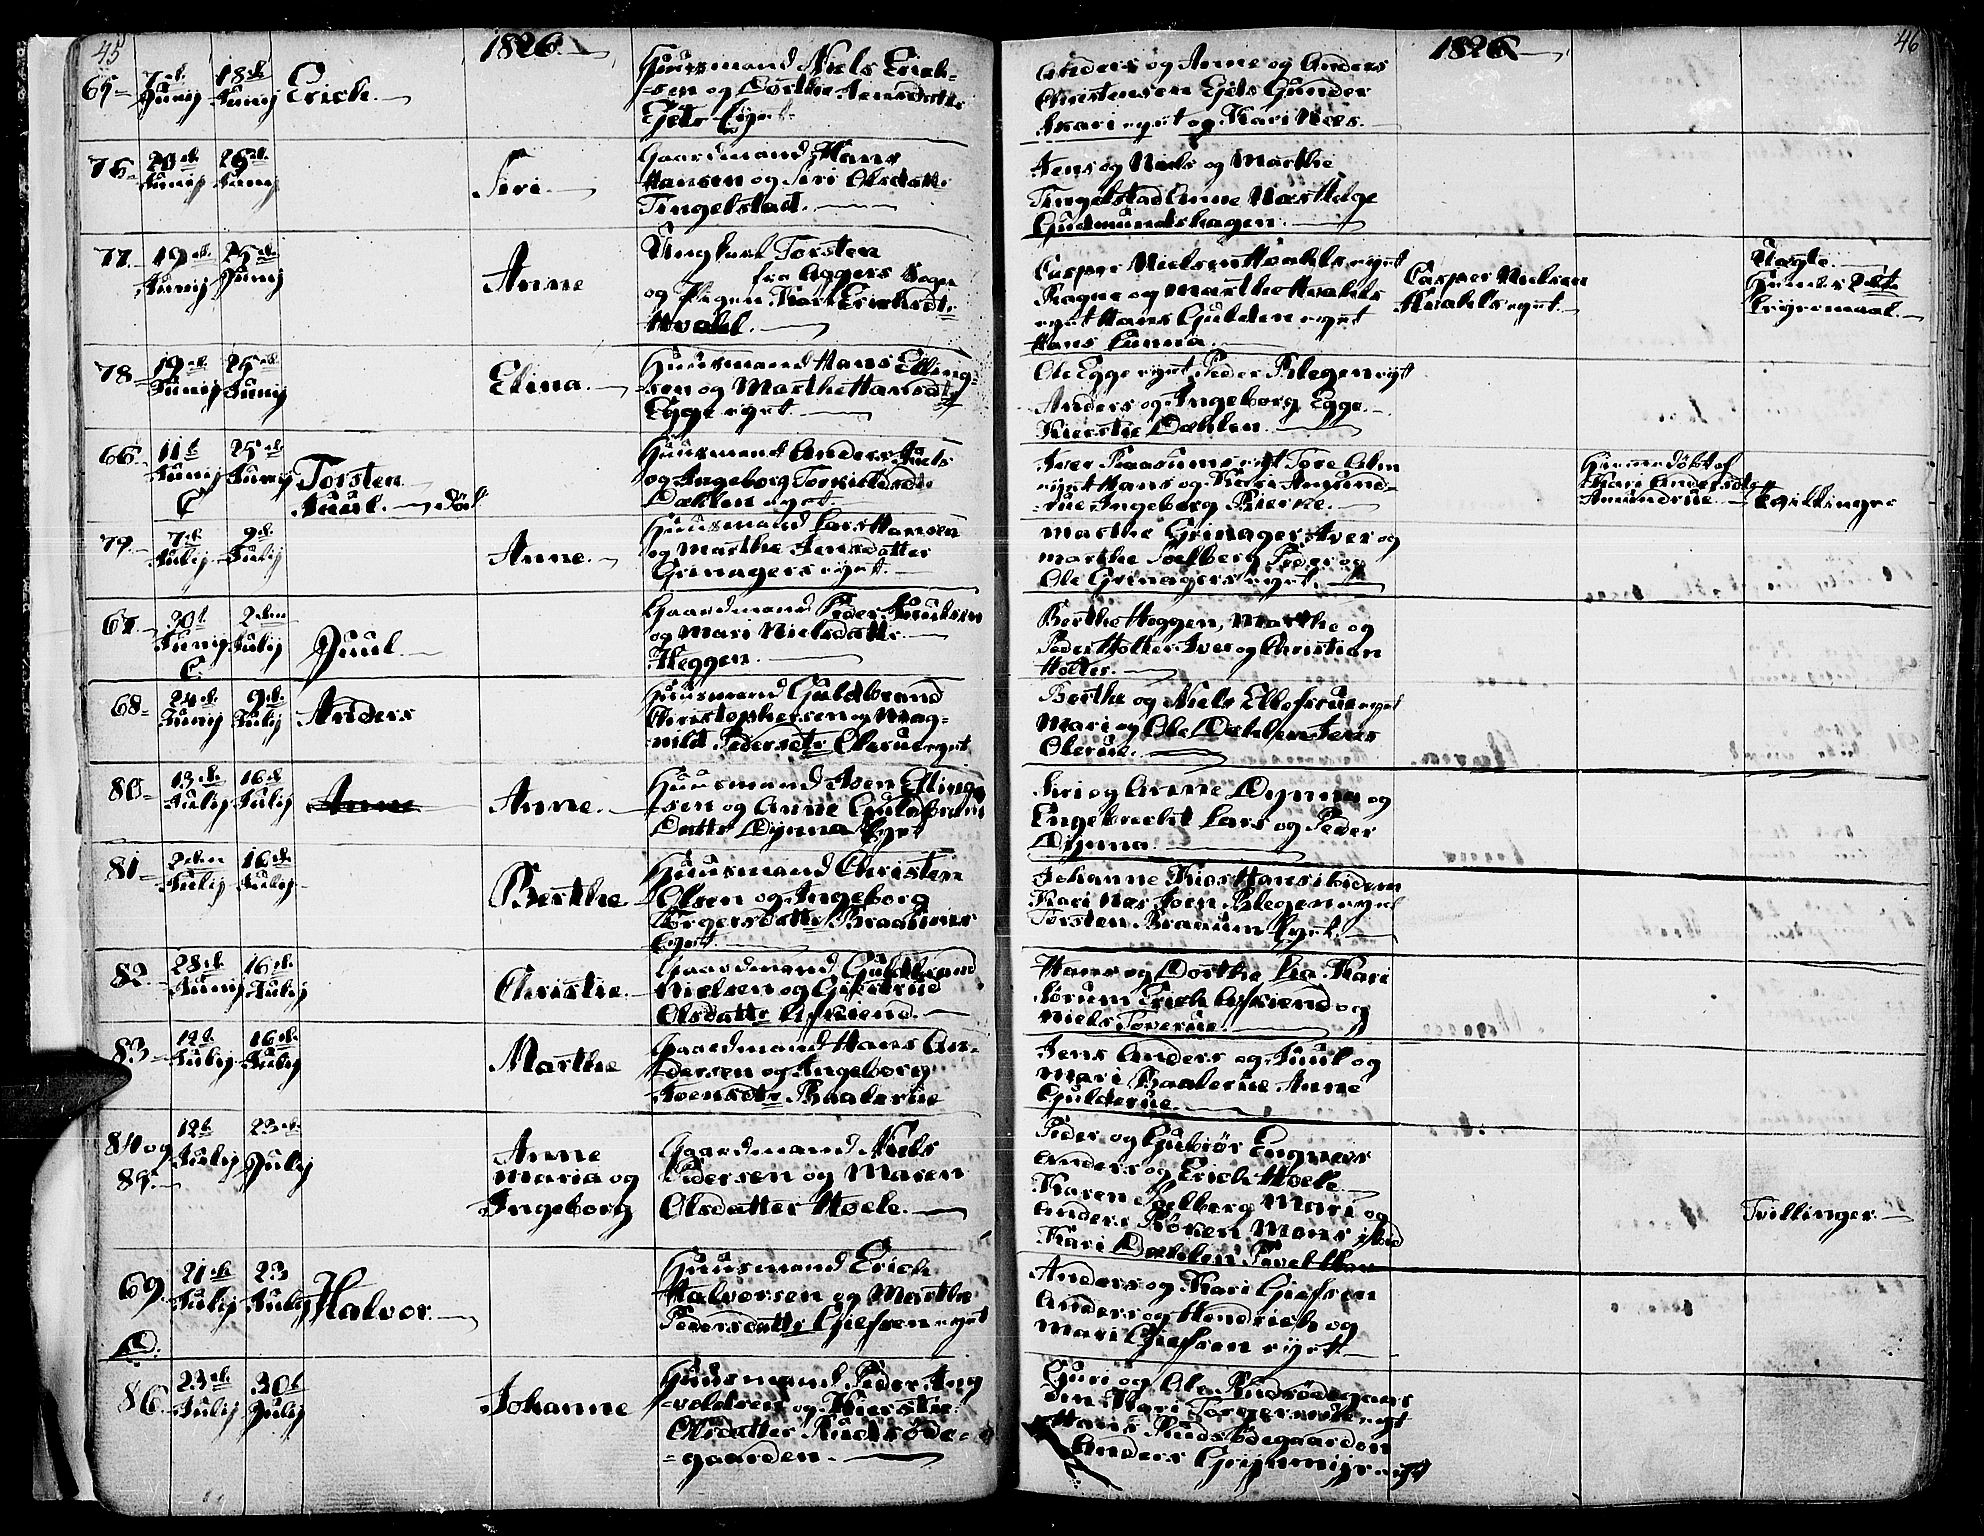 45
1826
65 7de Junij 18de Junij Erich
Huusmand Niels Erich-
-sen og Dorthe Jensdattr
Ejets Eyet
76 20de Junij 26de Junij Siri
Gaardmand Hans
Hansen og Siri Olsdattr
Tingelstad.
77 19de Junij 25de Junij Anne
Ungkarl Torsten
fra Aggers Sogn
og Pigen Kari Erichsdtr
Hvahl.
78 19de Junij 25de Junij Elina.
Huusmand Hans Elling-
sen og Marthe Hansdtr
Egge eyet
66 11t Junij 25de Junij Torsten
Juul. død
Huusmand Anders Juels
og Ingeborg Torkildsdtr
Dæhlen eyet
79 7de Julij 9de Julij Anne.
Huusmand Lars Hansen
og Marthe Jensdatter
Grinagers eyet.
67 30t Junij 2den Julij Juul.
Gaardmand Peder Knudsen
og Mari Nielsdattr
Heggen.
68 24de Junij 9de Julij Anders
Huusmand Guldbrand
Christophersen og Mag-
nild Pedersdtr Olerue eyet
80 13de Julij 16de Julij Anne Anne.
Huusmand Iver Elling-
sen og Anne Guldbrand
Dattr Dynna Eyet
81 2den Julij 16de Julij Berthe
Huusmand Christen
Olsen og Ingeborg
Børgersdattr Braatens
Eyet.
82 28de Junij 16de Julij Christie.
Gaardmand Guldbrand
Nielsen og Giertrud
Olsdattr
83 12t Julij 16de Julij Marthe
Gaardmand Hans An-
dersen og Ingeborg
Joensdtr Raalerue
84 og 85. 12t Julij 23de Julij Anne
Maria og
Ingeborg
Gaardmand Niels
Pedersen og Maren
Olsdatter Hoele.
69 21de Julij 23 Julij Halvor.
Huusmand Erich
Halvorsen og Marthe
Pedersdattr Giefsen eyet
86 23de Julij 30t Julij Johanne
Huusmand Peder Ing
-voldsen og Kierstie
Olsdatter Rudsøde-
-gaarden.
46
1826
Anders og Anne og Anders
Christensen Ejets Gunder
Kari eyet og Kari Næs.
Jens og Niels og Marthe
Tingelstad Anne Næs Helge
Gudmundshagen.
Casper Nielsen Hvahls eyet
Ragne og Marthe Hvahls
eyet Hans Gulden eyet
Hans Lunna.
Casper Nielsen
Hvahls eyet.
Uægte
Hendes 2det
Leyermaal
Ole Egge eyet Peder Blegen eyet
Anders og Ingeborg Egge
Kierstie Dæhlen.
Iver Raasums eyet Tore Alm
eyet Hans og Kari Amund-
rue Ingeborg Bierke.
Hjemmedøbt af
Kari Andersdtr
Amundrue Tvillinger
Marthe Grinager Iver og
Marthe Solberg Peder og
Ole Grinagers eyet.
Berthe Heggen, Marthe og
Peder Holter Iver og Christian
Holter.
Berthe og Niels Ellefsrue eyet
Mari og Ole Dæhlen Jens
Olerue.
Siri og Anne Dynna og
Engebreht Lars og Peder
Dynna
Johanne Kios Hans ibidem
Kari Næs Joen Blegen eyet
Torsten Braaten Eyet.
Hans og Dorthe Lia Kari
Sørum Erich
Niels Toverue.
Jens Anders og Juul og
Mari Raalerue Anne
Gulderue
Peder og Gubiør Engnæs
Anders og Erich Hoele
Karen Solberg Mari og
Anders Røken Mons ibid
Kari Dæhlen
Tvillinger
Anders og Kari Giefsen
Anders og Hendrich og
Mari Giefsen eyet.
Guri og Ole Rudsødegaar
den Kari
Hans Rudsødegaarden
Anders